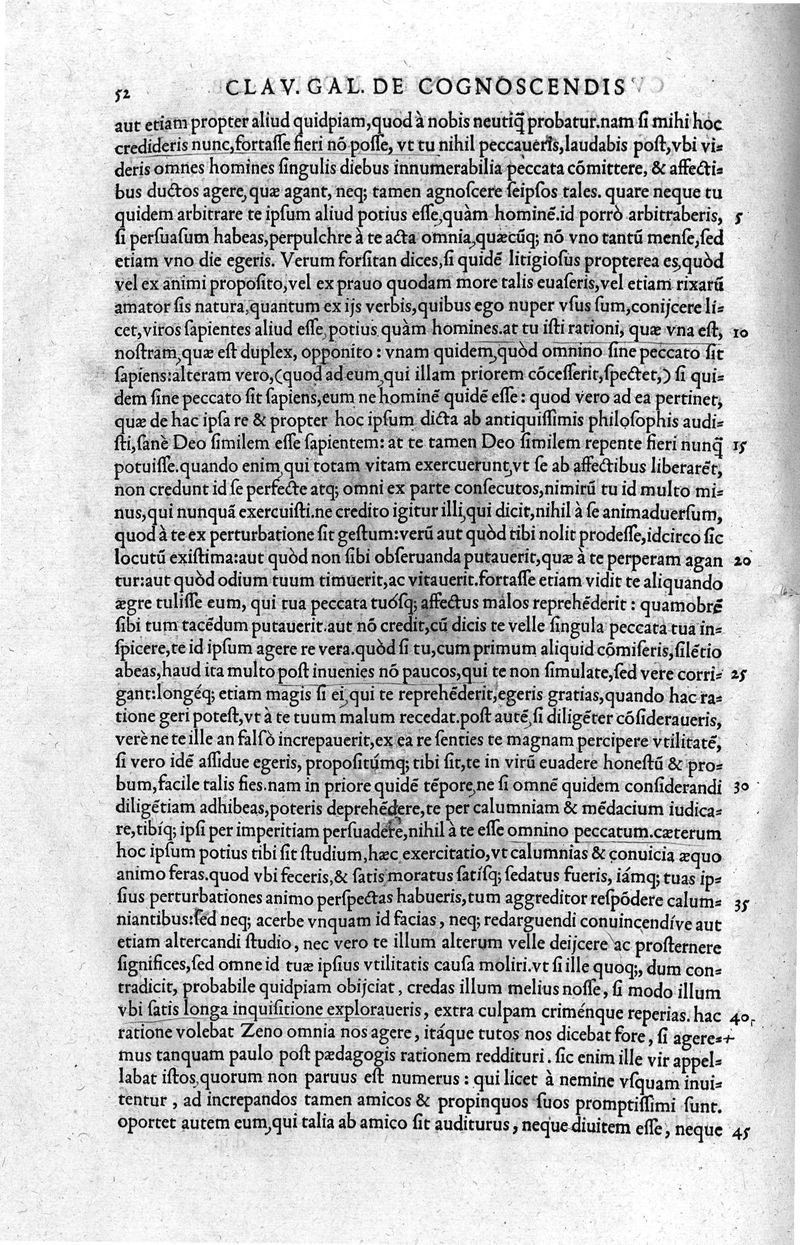 52 CLAV. GAL. DE COGNOSCENDIS
aut etiam propter aliud quidpiam,quod à nobis neutiq̃ probatur.nam ſi mihi hoc
credideris nunc,fortaſſe fieri nõ poſſe, vt tu nihil peccaueris,laudabis poſt,vbi vi-
deris omnes homines ſingulis diebus innumerabilia peccata cõmittere, & affecti-
bus ductos agere,quæ agant, neq; tamen agnoſcere ſeipſos tales. quare neque tu
quidem arbitrare te ipſum aliud potius eſſe,quàm hominẽ.id porrò arbitraberis, 5
ſi perſuaſum habeas,perpulchre à te acta omnia,quæcũq; nõ vno tantũ menſe,ſed
etiam vno die egeris. Verum forſitan dices,ſi quidẽ litigioſus propterea es,quòd
vel ex animi propoſito,vel ex prauo quodam more talis euaſeris,vel etiam rixarũ
amator ſis natura,quantum ex ijs verbis,quibus ego nuper vſus ſum,conijcere li-
cet,viros ſapientes aliud eſſe potius quàm homines.at tu iſti rationi, quæ vna eſt, 10
noſtram,quæ eſt duplex, opponito : vnam quidem,quòd omnino ſine peccato ſit
ſapiens:alteram vero,(quod ad eum,qui illam priorem cõceſſerit,ſpectet,) ſi qui-
dem ſine peccato ſit ſapiens,eum ne hominẽ quidẽ eſſe : quod vero ad ea pertinet,
quæ de hac ipſa re & propter hoc ipſum dicta ab antiquiſſimis philoſophis audi-
ſti,ſanè Deo ſimilem eſſe ſapientem: at te tamen Deo ſimilem repente fieri nunq̃ 15
potuiſſe.quando enim,qui totam vitam exercuerunt,vt ſe ab affectibus liberarẽt,
non credunt id ſe perfecte atq; omni ex parte conſecutos,nimirũ tu id multo mi-
nus,qui nunquã exercuiſti.ne credito igitur illi,qui dicit,nihil à ſe animaduerſum,
quod à te ex perturbatione ſit geſtum:verũ aut quòd tibi nolit prodeſſe,idcirco ſic
locutũ exiſtima:aut quòd non ſibi obſeruanda putauerit,quæ à te perperam agan 20
tur:aut quòd odium tuum timuerit,ac vitauerit.fortaſſe etiam vidit te aliquando
ægre tuliſſe eum, qui tua peccata tuóſq; affectus malos reprehẽderit : quamobrẽ
ſibi tum tacẽdum putauerit.aut nõ credit,cũ dicis te velle ſingula peccata tua in-
ſpicere,te id ipſum agere re vera.quòd ſi tu,cum primum aliquid cõmiſeris,ſilẽtio
abeas,haud ita multo poſt inuenies nõ paucos,qui te non ſimulate,ſed vere corri- 25
gant:longéq; etiam magis ſi ei,qui te reprehẽderit,egeris gratias,quando hac ra-
tione geri poteſt,vt à te tuum malum recedat.poſt autẽ,ſi diligẽter cõſideraueris,
verè ne te ille an falſò increpauerit,ex ea re ſenties te magnam percipere vtilitatẽ,
ſi vero idẽ aſſidue egeris, propoſitúmq; tibi ſit,te in virũ euadere honeſtũ & pro-
bum,facile talis fies.nam in priore quidẽ tẽpore,ne ſi omnẽ quidem conſiderandi 30
diligẽtiam adhibeas,poteris deprehẽdere,te per calumniam & mẽdacium iudica-
re,tibíq; ipſi per imperitiam perſuadere,nihil à te eſſe omnino peccatum.cæterum
hoc ipſum potius tibi ſit ſtudium,hæc exercitatio,vt calumnias & conuicia æquo
animo feras.quod vbi feceris,& ſatis moratus ſatíſq; ſedatus fueris, iámq; tuas ip-
ſius perturbationes animo perſpectas habueris,tum aggreditor reſpõdere calum- 35
niantibus:ſed neq; acerbe vnquam id facias , neq; redarguendi conuincendíve aut
etiam altercandi ſtudio , nec vero te illum alterum velle deijcere ac proſternere
ſignifices,ſed omne id tuæ ipſius vtilitatis cauſa moliri.vt ſi ille quoq;, dum con-
tradicit, probabile quidpiam obijciat, credas illum melius noſſe, ſi modo illum
vbi ſatis longa inquiſitione exploraueris, extra culpam criménque reperias. hac 40
ratione volebat Zeno omnia nos agere, itáque tutos nos dicebat fore, ſi agere-
mus tanquam paulo poſt pædagogis rationem reddituri. ſic enim ille vir appel-
labat iſtos,quorum non paruus eſt numerus : qui licet à nemine vſquam inui-
tentur , ad increpandos tamen amicos & propinquos ſuos promptiſſimi ſunt.
oportet autem eum,qui talia ab amico ſit auditurus, neque diuitem eſſe, neque 45